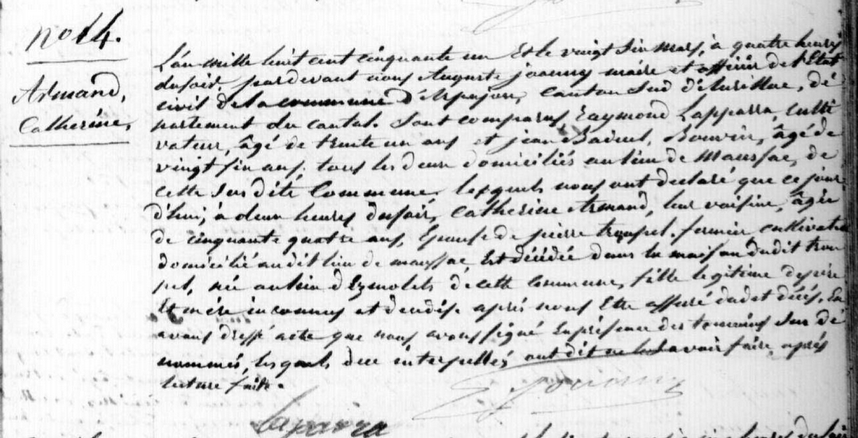 No 14.
Armand,
Catherine,
L'an mille huit cent cinquante un Et le vingt six mars, à quatre heures
du soir, par devant nous Auguste joanny maire et officier de l'Etat
civil de la commune d'Arpajon, canton Sud d'Aurillac, dé-
partement du cantal. Sont comparus Raymond Lapparra, culti
vateur, âgé de trente un ans et jean Bouvier, âgé de
vingt six ans, tous les deux domiciliés au lieu de Maussac, de
cette Susdite Commune, lesquels nous ont déclaré que ce jour
d'hui, à deux heures du soir, Catherine Armand, leur voisine, âgée
de cinquante quatre ans, Epouse de pierre fermier cultivateur
domicilié au dit lieu de maussac, Est décédée dans la maison du dit
née au lieu d' de cette commune, fille légitime de père
Et mère inconnus et de suite après nous Etre assuré du dit décès, En
avons dressé acte que nous avons signé En présence des temoins Sus dé
nommés, lesquels de ce interpellés ont dit ne le savoir faire, après
lecture faite.
Joanny
Laparra